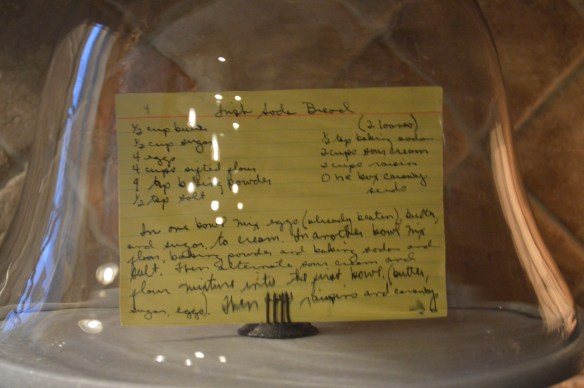 Irish Soda Bread
(2 loaves)
½ cup butter
½ cup sugar
4 eggs
4 cups sifted flour
tsp baking powder
½ tsp salt
½ tsp baking soda
2 cups sour cream
2 cups raisin
One box caraway
seeds
In one bowl mix eggs (already beaten), butter,
and sugar, to cream. In another bowl mix
flour, baking powder and baking soda and
salt. Then alternate sour cream and
flour mixture into the first bowl, (butter,
sugar, eggs). Then raisins and caraway